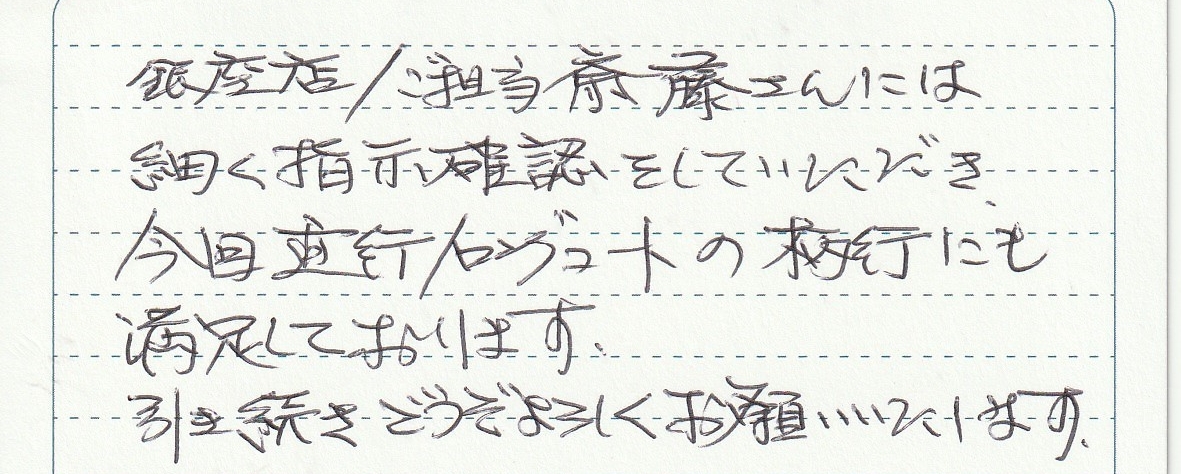 銀座店/ご担当斎藤さんには
細く指示、確認をしていただき、
今回 /ロングコートの柄行にも
満足しております、
引き続きどうぞよろしくお願いいたします、